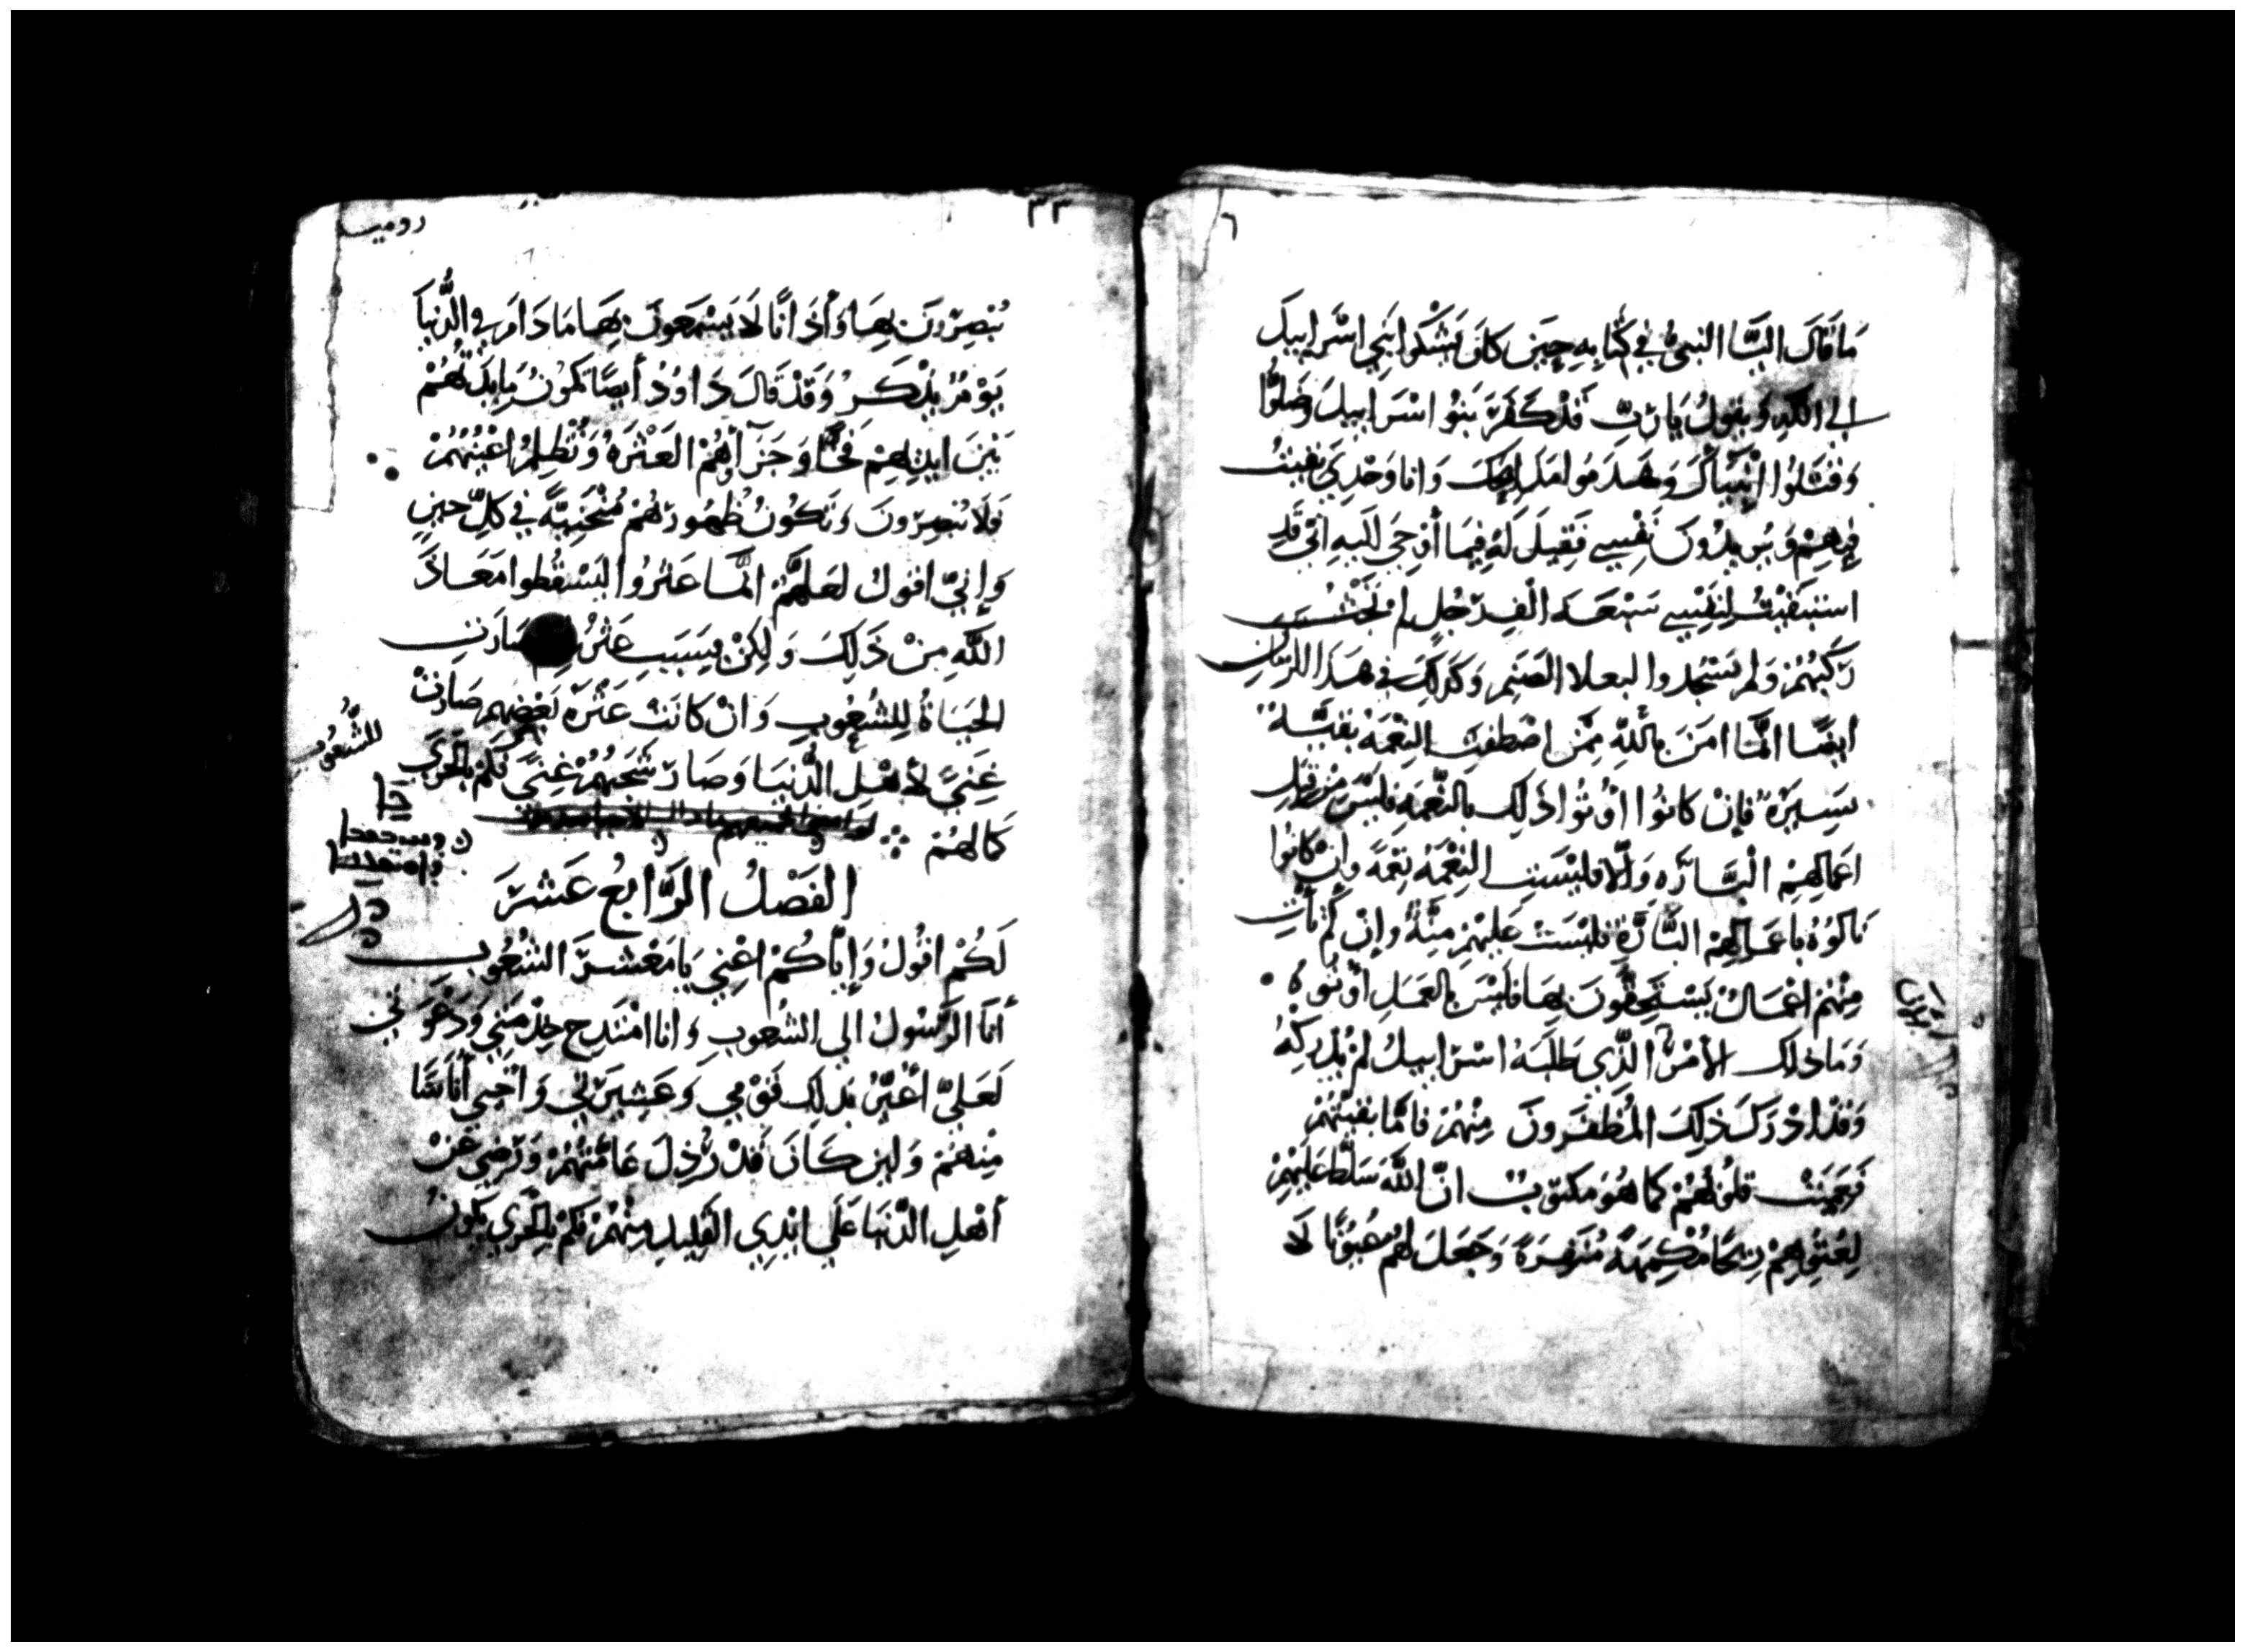 ٦
مَا قَالَ اليَّا النبىُّ فِي كُتابِهِ حِيَن كانَ يَشْكوا بَنِي اسْرَاييلَ
الي الله وَيقولُ يَا رَبِّ قَدْ كَفَرَ بَنُو اسْرَاييلَ وَضَلوُّا
وَقتَلُوا انْبيَآكَ وَهَدَمُوا مَذَابِحَكَ وَانا وَحْدِي بَقيتُ
فِيهِمْ وَيُريدُونَ نَفْسِي فَقِيلَ لَهُ فِيمَا أُوْحِيَ اليهِ انِّي قَدِ
استبقَيْتُ لِنَفْسِي سَبْعَةَ الْفِ رَجُلٍ لم تَجْثُ
رُكَبُهُمْ وَلم يَسْجُدوا لبعلا الصَنَمِ وَكَذلِكَ فِي هَذا الزمَانِ
ايضًا انَّما امَنَ بِاللَّهِ مِمَّن اصْطَفتِ النِعْمَةُ بَقيَّةٌ
يَسِيرَةٌ فإن كانوُا أُوتُوا ذَلِكَ بالنِّعْمَهِ فليْسَ مِنْ قِبَلِ
اعَمالِهِمِ الْبَارَّهِ وَالَّا فليْسَتِ النِعْمَةُ نِعْمَةً وانْ كانُوا
نَالُوُهُ باعمَالِهِمُ البَّارَّةِ فليْسَتْ عَليْهِمْ مِنَّةٌ وَإن لم تأتِ
مِنْهُم اعْمَالٌ يَسْتَحِقُّونَ بِهَا فليْسَ بِالعَمَلِ أُوتُوهُ
وَمَا ذلك الأمْرُ الَّذِي طَلَبَهُ اسْرَاييلُ لمْ يُدْرِكْهُ
وَقَدْ ادْرَكَ ذلِكَ المُظفَرونَ مِنْهُمْ فامَّا بقيَّتُهُمْ
فَعَمِيَتْ قلُوبُهُمْ كما هُوَ مكتوبٌ انَّ اللَّهَ سَلَّط عَليْهِمْ
لِعُتوِّهِمْ رِيحًا مُكْمِهَةً مُنَفِرَةً وَجَعَلَ لهُم عُيُونًا لَا
٣٣
رومية
يُبْصِرْونَ بِهَا وَأذَانًا لَا يَسْمَعونَ بِهَا مَا دَامَ فِي الدُّنيَا
يَوْمٌ يُذْكَرُ وَقَدْ قَالَ دَاوُدُ أيضًا تَكونُ مَايِدَتُهُمْ
بَيْنَ ايْدِيهِمْ فَخًّا وَجَزَآؤُهُمْ العَثْرَةُ وَتُظْلِمُ اعْيُنُهُمْ
فَلَا يُبْصِرُونَ وَتَكوُنُ ظُهُورُهُمْ مُنْحَنِيَةً فِي كلِّ حِينٍ
وَإنِّي اقولُ لعَلَّهُمْ انَّما عَثرُوا ليَسْقُطوا مَعَاذَ
اللَّهِ مِنْ ذَلِكَ وَلكِنْ بِسَبَبِ عَثْرَ صَارَتِ
الحَيَاةُ للِشُعُوبِ وَانْ كانَتْ عَثْرَةُ بَعْضِهم صَارَتْ
غِنيً لأهْلِ الدُّنيَا وَصَارَ شَجَبُهُمْ غِنيً فكمْ بالحَرَي
كمَالهُمْ
للشُّعُوبِ
الفَصْلُ الرَّابعُ عَشَرَ
لَكُمْ اقُولُ وَإيَّاكُمْ اعْنِي يَا مَعْشَرَ الشُعُوبِ
أنَا الرَّسُولُ الي الشُعوبِ وَانا امْتَدِح خِدْمَتِي وَدَعْوَتي
لعَليِّ أُغيِّرُ بذلِكَ قَوْمِي وَعَشِيرَتِي وَأُحْيي أُنَاسًا
مِنهُمْ وَلين كَانَ قَدْ رُذِلَ عَامَّتُهُمْ وَرَضِيَ عَنْ
أهْلِ الدُّنيَا عَلَي ايْدِي القَلِيلِ مِنْهُمْ فكمْ بِالحَرِي يَكُونُ